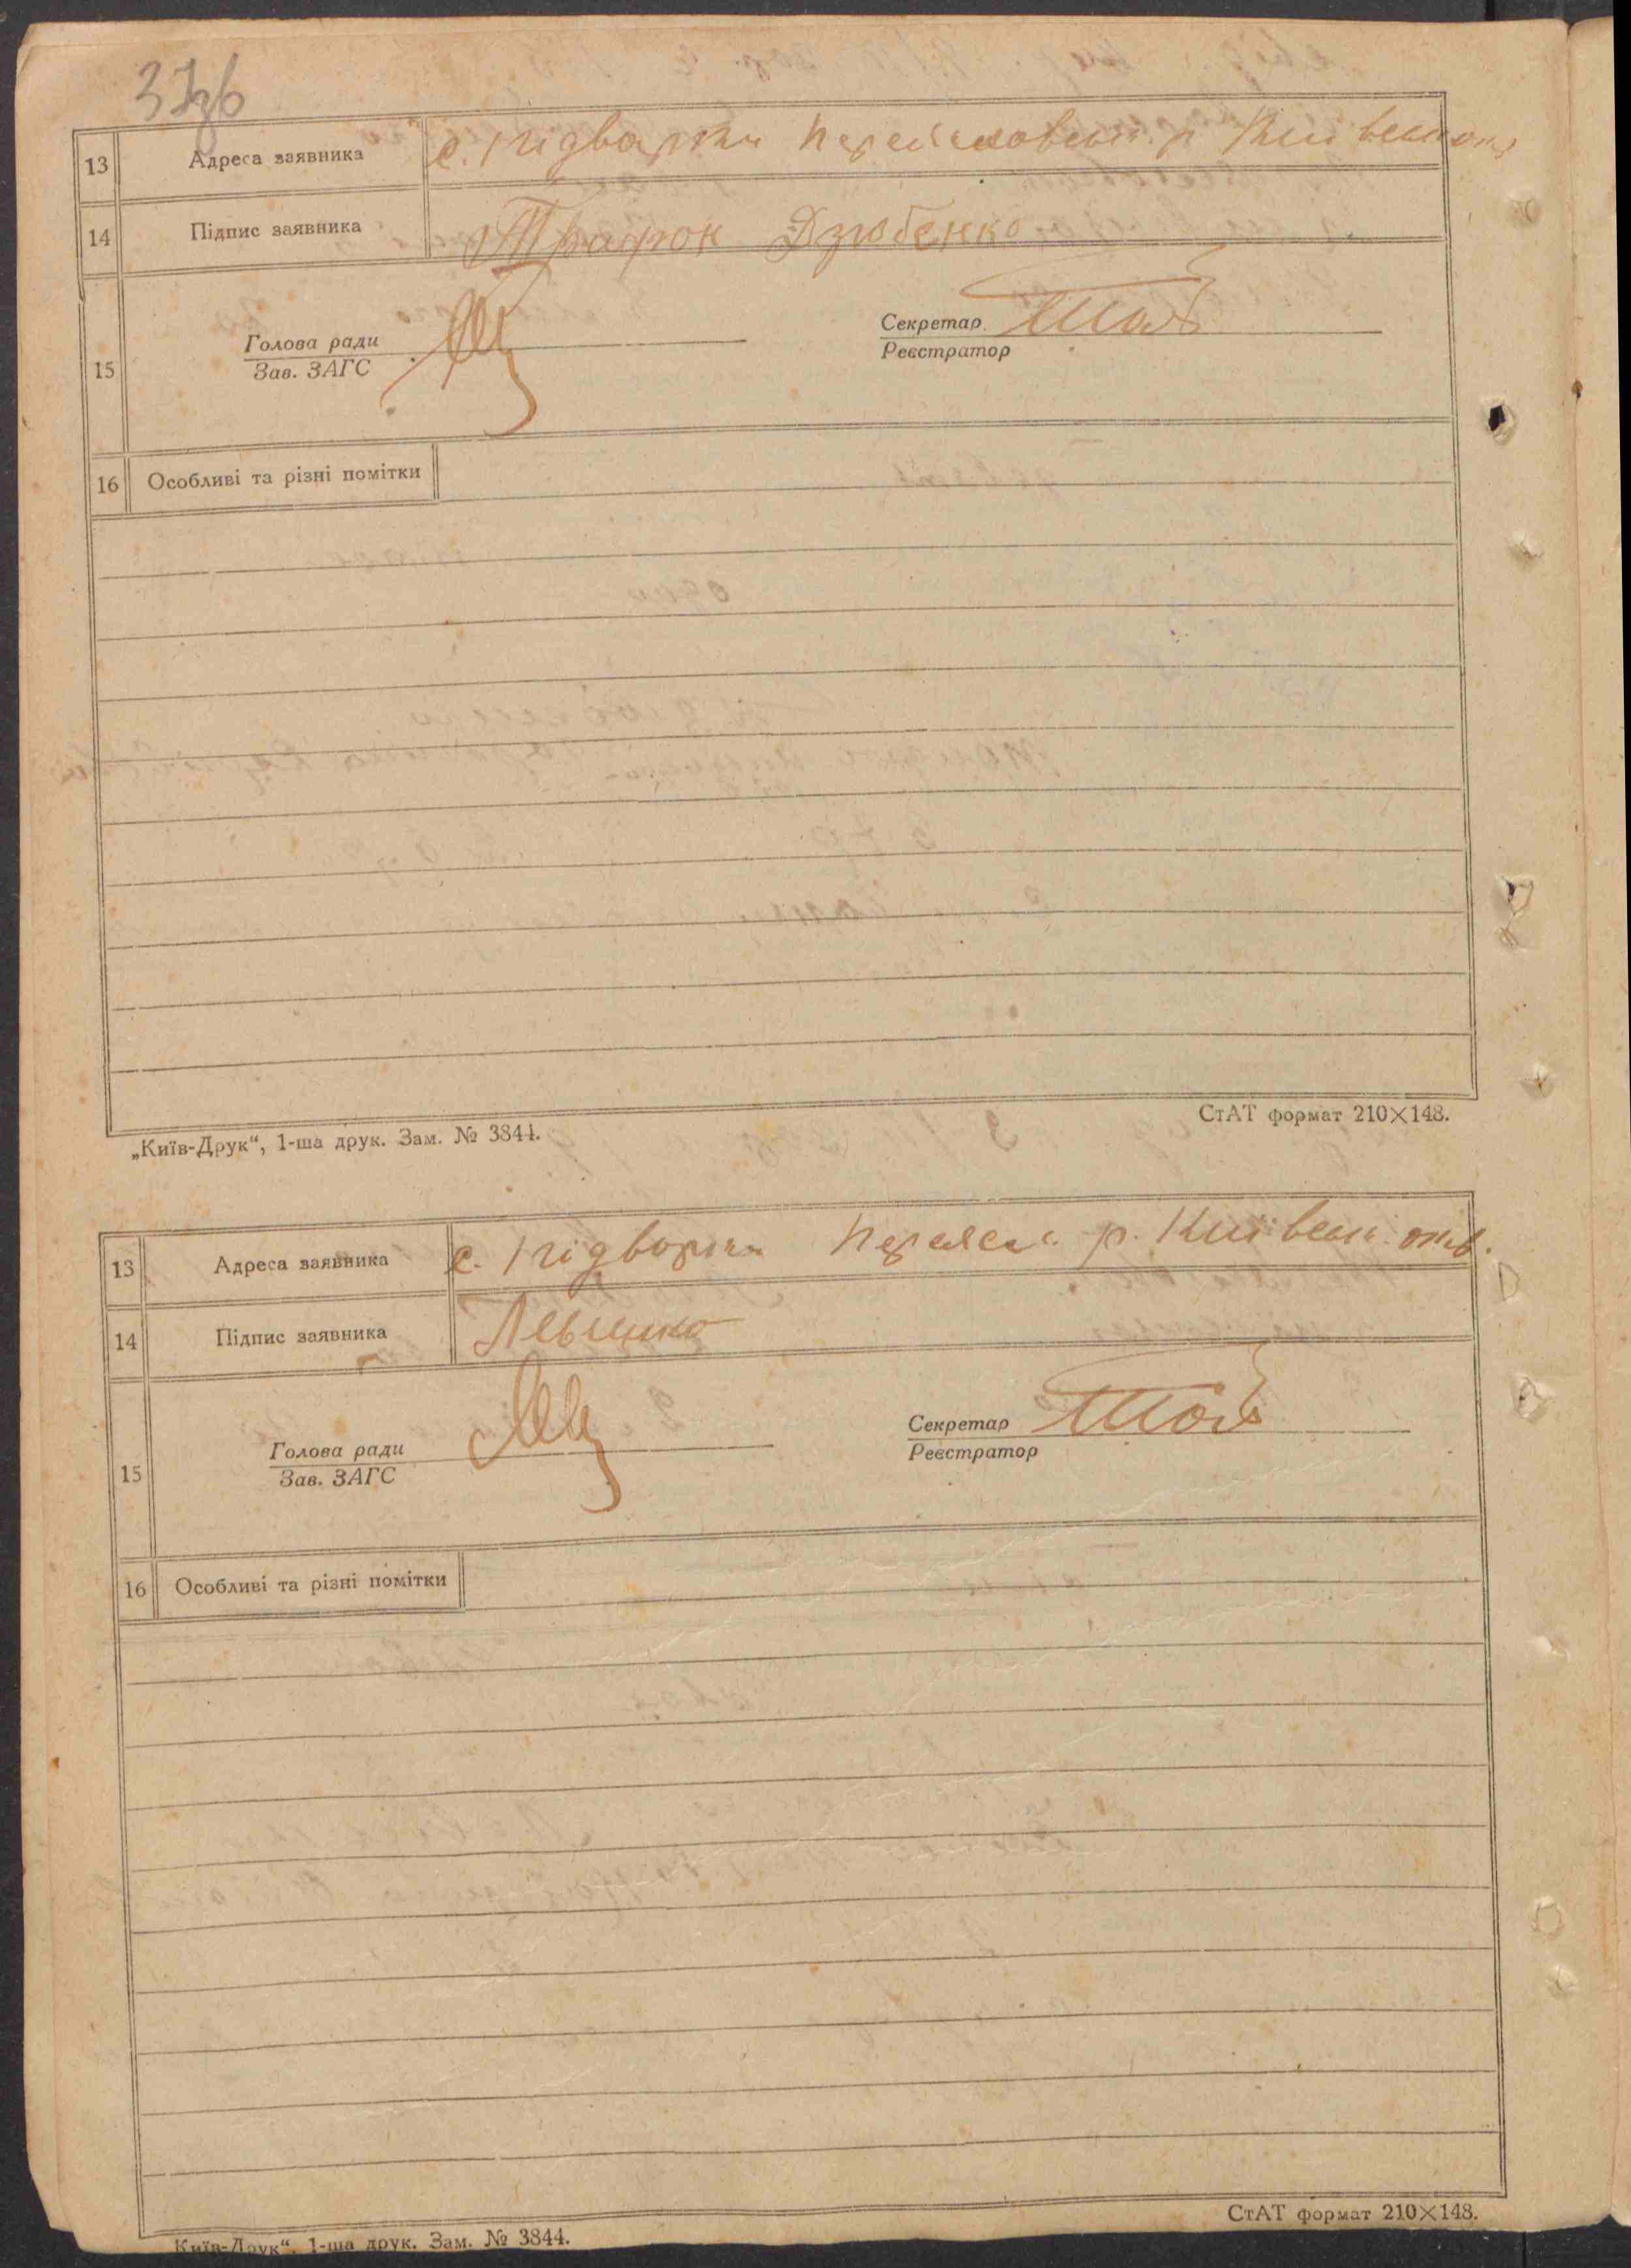 37зв
13 Адреса заявника с. Підварки Переясловськ. р. Київськ
14 Підпис заявника Трафон Дзюбенко
Секретар
Голова ради
Реєстратор
15
Зав. ЗАГС
16 Особливі та різні помітки
„Київ-Друк“, 1-ша друк. Зам. № 3844. СтАТ формат 210×148.
13 Адреса заявника с. Підворки Переясл. р. Київськ.
14 Підпис заявника Левченко
Секретар
Голова ради
Реєстратор
15
Зав. ЗАГС
16 Особливі та різні помітки
СтАТ формат 210×148.
Київ-Друк“, 1-ша друк. Зам. № 3844.